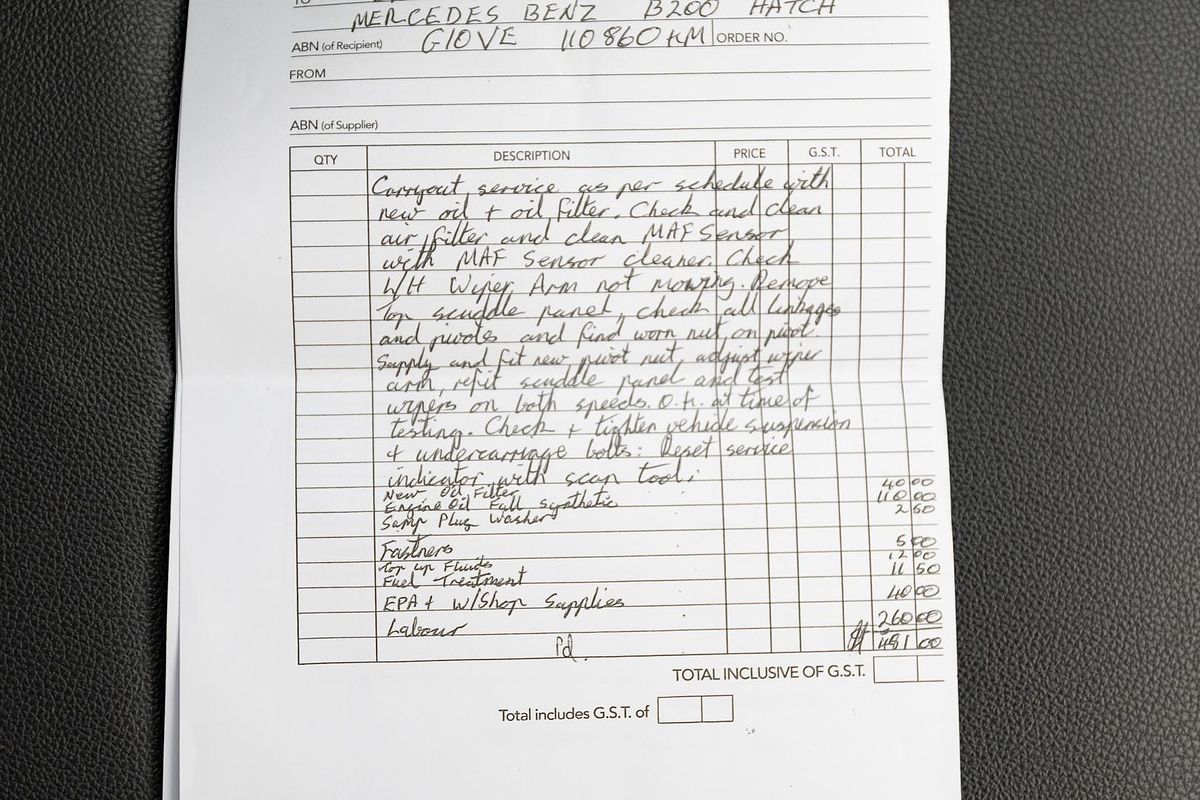 MERCEDES BENZ B200 HATCH
ABN (of Recipient) G10VE 110860KM ORDER NO.
FROM
ABN (of Supplier)
QTY DESCRIPTION PRICE G.S.T. TOTAL
Carryout service as per schedule with
new oil + oil filter. Check and clean
air filter and clean MAF Sensor
with MAF Sensor cleaner. Check
Wiper Arm not moving. Remove
Top scuddle panel, check all linkages
and pivotes and find worn nut, on pivot.
Supply and fit new pivot nut, adjust wiper
arm, refit scuddle panel and test
wipers on both speeds. O.K. at time of
testing. Check + tighten vehicle suspension
+ undercarriage bolts: Reset service
indicator with scan tool:
New Oil Filter 40 00
Engine Oil Full Synthetic 110 00
Samp Plug Washer 2 50
Fastners 5 00
Top up Fluids 12 00
Fuel Treatment 11 50
EPA + W/Shop Supplies 40 00
Labour 260 00
Pd. $ 481 00
TOTAL INCLUSIVE OF G.S.T.
Total includes G.S.T. of